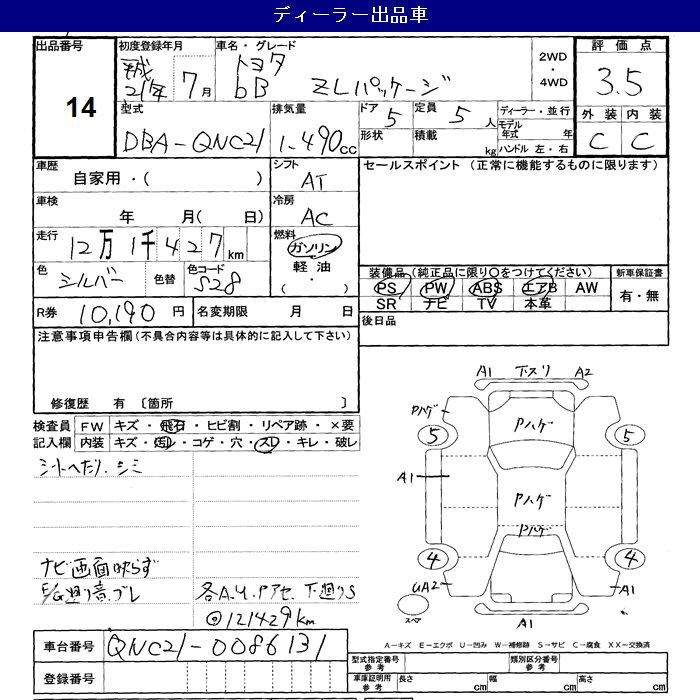 ディーラー出品車
出品番号 14
初度登録年月 平成21年 7月
車名・グレード トヨタ
bB ZLパッケージ
2WD・4WD
評価点 3.5
外装 内装
C C
型式 DBA-QNC21
排気量 1.490cc
ドア 5
定員 5人
形状 積載 kg
ディーラー・並行
モデル年式 年
ハンドル 左・右
車歴 自家用・( )
シフト AT
セールスポイント (正常に機能するものに限ります)
車検 年 月( 日)
冷房 AC
走行 12万1千427km
燃料 ガソリン
軽油
( ・ )
色 シルバー 色替 色コード S28
装備品(純正品に限り○をつけてください) 新車保証書
PS PW ABS エアB AW 有・無
SR ナビ TV 本革
R券 10,190円 名変期限 月 日
後日品
注意事項申告欄(不具合内容等は具体的に記入して下さい)
修復歴 有 〔箇所 〕
検査員記入欄
FW キズ・飛石・ヒビ割・リペア跡・×要
内装 キズ・汚レ・コゲ・穴・スレ・キレ・破レ
シートへたり、シミ
ナビ画面映らず
E/G廻り音、ブレ
各A.U.Pアセ、下廻りS
@121429km
A1 下スリ A2
Pハゲ
Pハゲ
5 5
A1
Pハゲ
Pハゲ
4 4
UA2 A1
スペア
A1
車台番号 QNC21-0086131
登録番号
A-キズ E-エクボ U-凹み W-補修跡 S-サビ C-腐食 XX-交換済
型式指定番号 参考 類別区分番号 参考
車庫証明用 参考 長さ cm 幅 cm 高さ cm